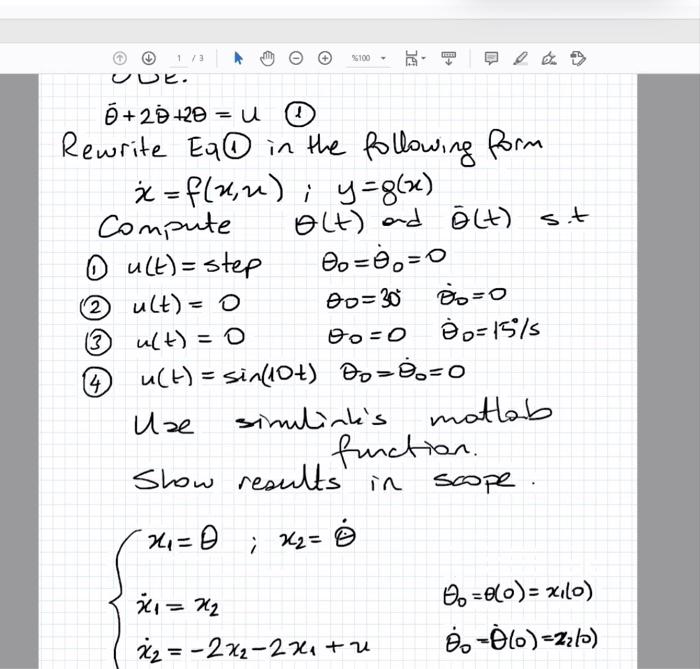 1 / 3
%100
ODE.
θ̈+2θ̇+2θ = u ①
Rewrite Eq① in the following form
ẋ = f(x,u) ; y=g(x)
Compute θ(t) and θ̈(t) s.t
① u(t)=step θ₀=θ̇₀=0
② u(t)= 0 θ₀=30° θ̇₀=0
③ u(t)= 0 θ₀=0 θ̇₀=15°/s
④ u(t)=sin(10t) θ₀=θ̇₀=0
Use simulink's matlab
function.
Show results in scope.
x₁=θ ; x₂=θ̇
ẋ₁=x₂ θ₀=θ(0)=x₁(0)
ẋ₂=-2x₂-2x₁+u θ̇₀=θ̇(0)=x₂(0)